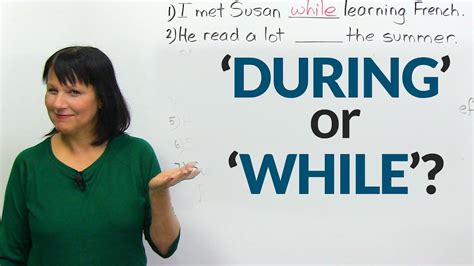 1) I met Susan while learning French.
2) He read a lot _____ the summer.
'DURING'
or
'WHILE'?
5)
6)
7)